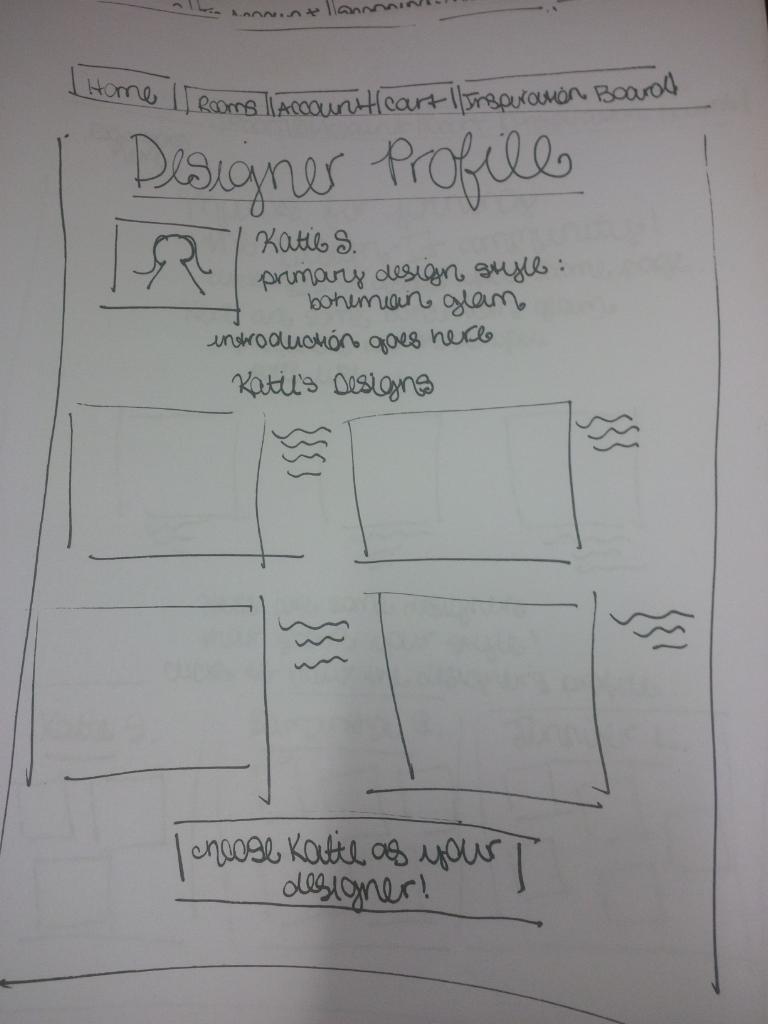 Home Rooms Account Cart Inspiration Board
Designer Profile
Katie S.
primary design style:
bohemian glam
introduction goes here
Katie's Designs
choose Katie as your
designer!